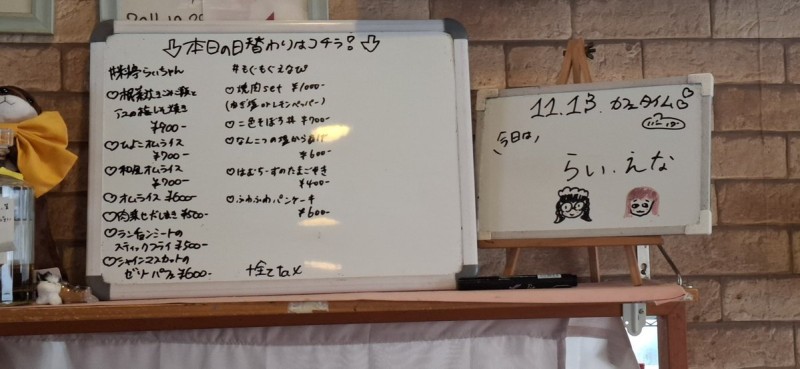 ⇩本日の日替わりはコチラ!⇩
#米将らぃちゃん
♡根菜炊きこみご飯と
の梅しそ焼き
¥900-
♡ひよこオムライス
¥700-
♡和風オムライス
¥700-
♡オムライス ¥600-
♡肉巻きだしまき ¥500-
♡ランチョンミートの
スティックフライ ¥500-
♡シャインマスカットの
ゼリーパフェ ¥600-
#もぐもぐえなぴ
♡焼肉set ¥1000-
(ねぎ塩orレモンペッパー)
♡二色そぼろ丼 ¥700-
♡なんこつの塩から揚げ
¥600-
♡はむちーずのたまごやき
¥400-
♡ふわふわパンケーキ
¥600-
+全てtax
11.13.カフェタイム♡
今日は、
らぃ.えな